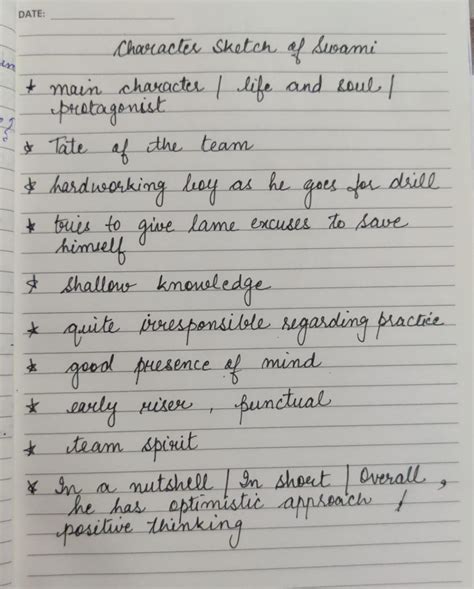 DATE:
Character Sketch of Swami
* main character / life and soul /
protagonist
* Tate of the team
* hardworking boy as he goes for drill
* tries to give lame excuses to save
himself
* shallow knowledge
* quite irresponsible regarding practice
* good presence of mind
* early riser, punctual
* team spirit
* In a nutshell / In short / Overall,
he has optimistic approach /
positive thinking